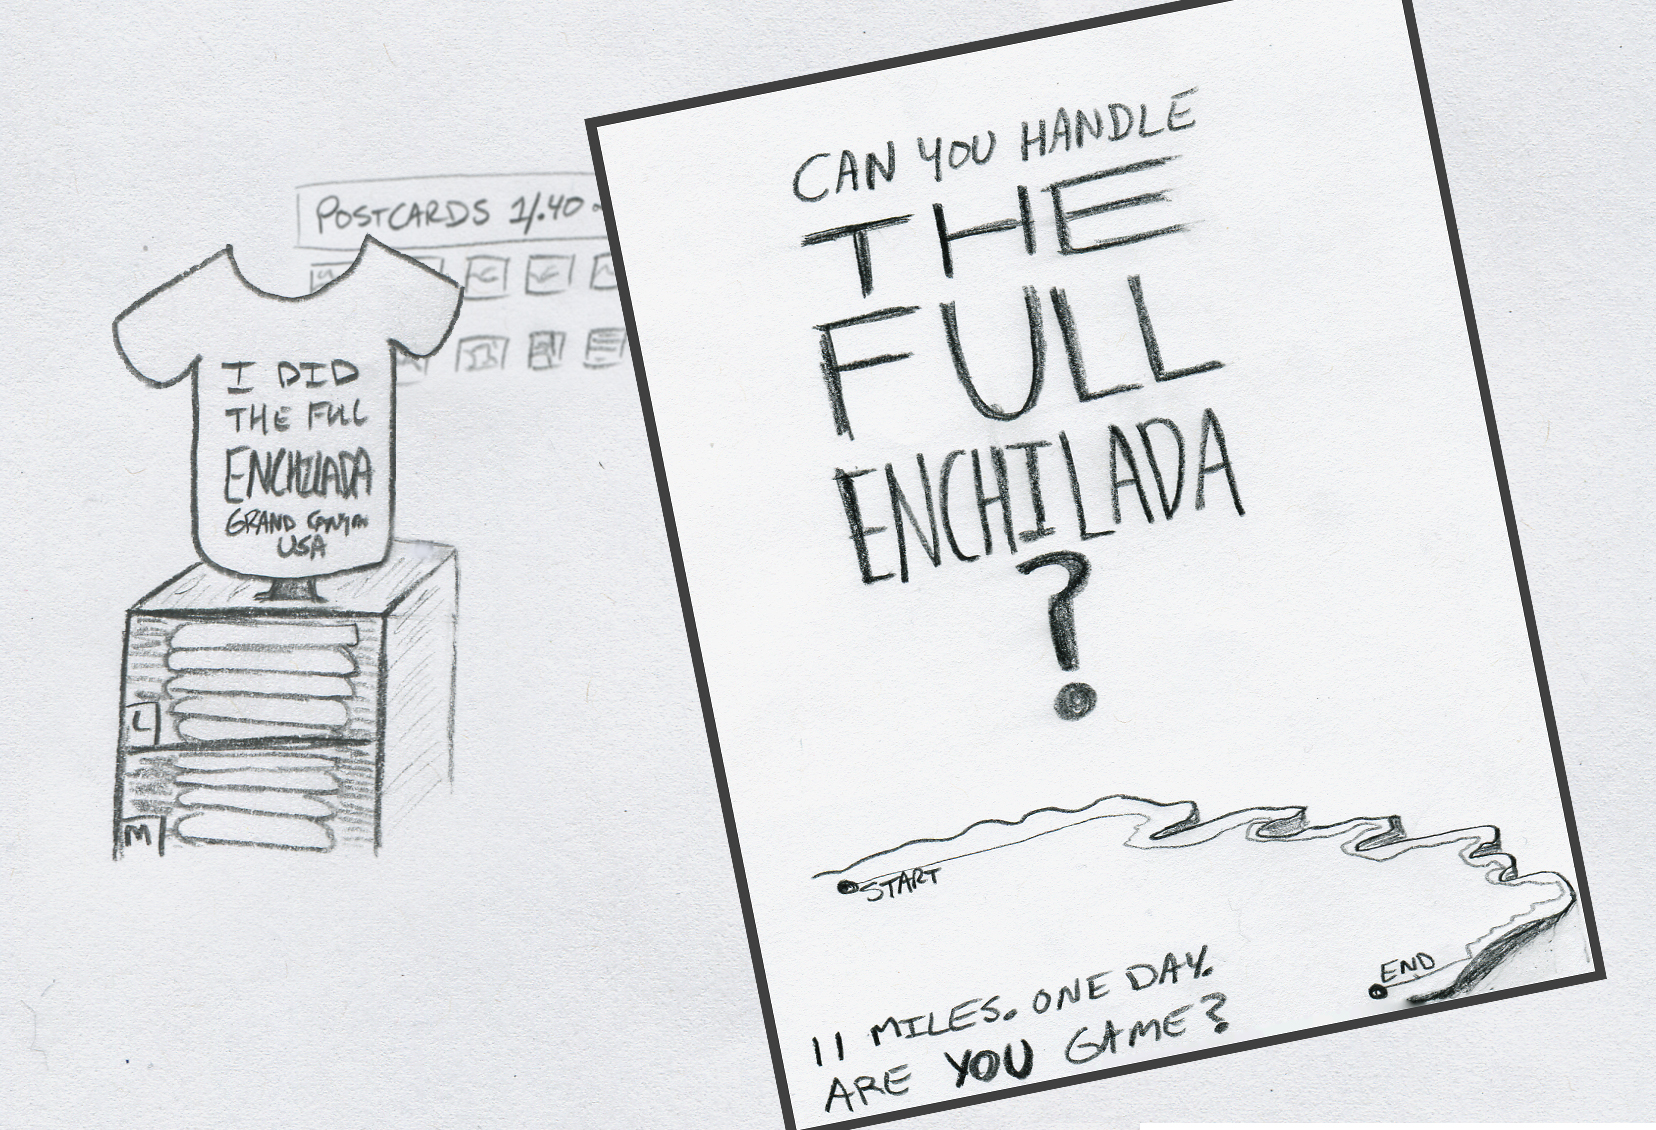 POSTCARDS 1/.40
I DID
THE FULL
ENCHILADA
GRAND CANYON
USA
L
M
CAN YOU HANDLE
THE
FULL
ENCHILADA
?
START
END
11 MILES. ONE DAY.
ARE YOU GAME?